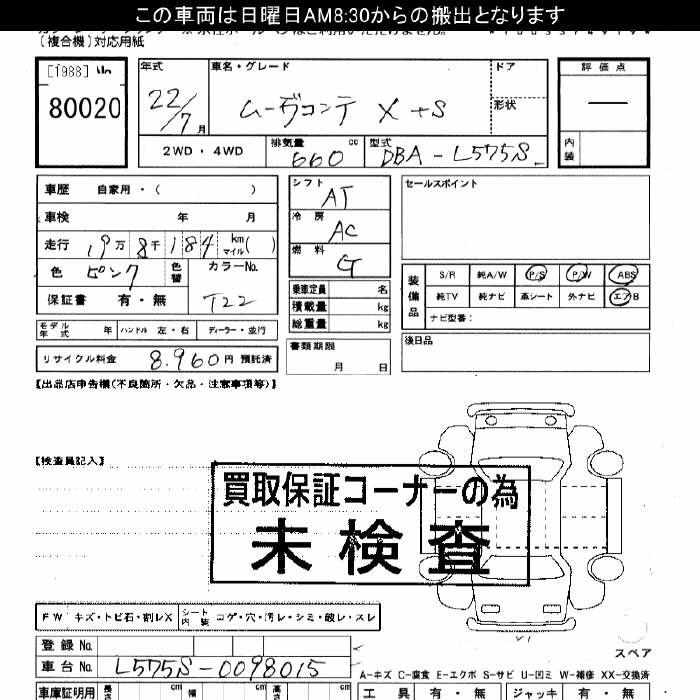 この車両は日曜日AM8:30からの搬出となります
(複合機)対応用紙
[1988]
80020
年式
22/7月
車名・グレード
ムーヴコンテ X+S
ドア
形状
評価点
内装
2WD・4WD
排気量
660 cc
型式
DBA-L575S
車歴 自家用・( )
車検 年 月
走行 19万8千184 km マイル( )
色 ピンク
色替
カラーNo.
T22
保証書 有・無
シフト AT
冷房 AC
燃料 G
乗車定員 名
積載量 kg
総重量 kg
セールスポイント
装備品
S/R 純A/W P/S P/W ABS
純TV 純ナビ 革シート 外ナビ エアB
ナビ型番:
モデル年式 年 ハンドル 左・右 ディーラー・並行
リサイクル料金 8,960円 預託済
書類期限
月 日
後日品
【出品店申告欄(不良箇所・欠品・注意事項等)】
【検査員記入】
買取保証コーナーの為
未検査
FW キズ・トビ石・割レX
シート内装 コゲ・穴・汚レ・シミ・破レ・スレ
スペア
登録No.
車台No. L575S-0098015
A-キズ C-腐食 E-エクボ S-サビ U-凹ミ W-補修 XX-交換済
車庫証明用 長さ cm 幅 cm 高さ cm
工具 有・無 ジャッキ 有・無